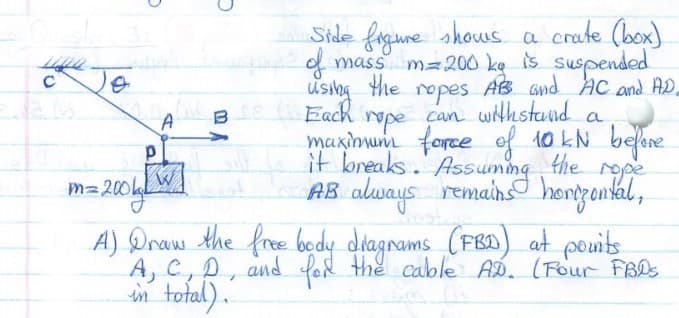 Side figure shows a crate (box)
of mass m=200 kg is suspended
using the ropes AB and AC and AD.
Each rope can withstand a
maximum force of 10 kN before
it breaks. Assuming the rope
AB always remains horizontal,
C θ
A B
D
W
m=200kg
A) Draw the free body diagrams (FBD) at points
A, C, D, and for the cable AD. (Four FBDs
in total).